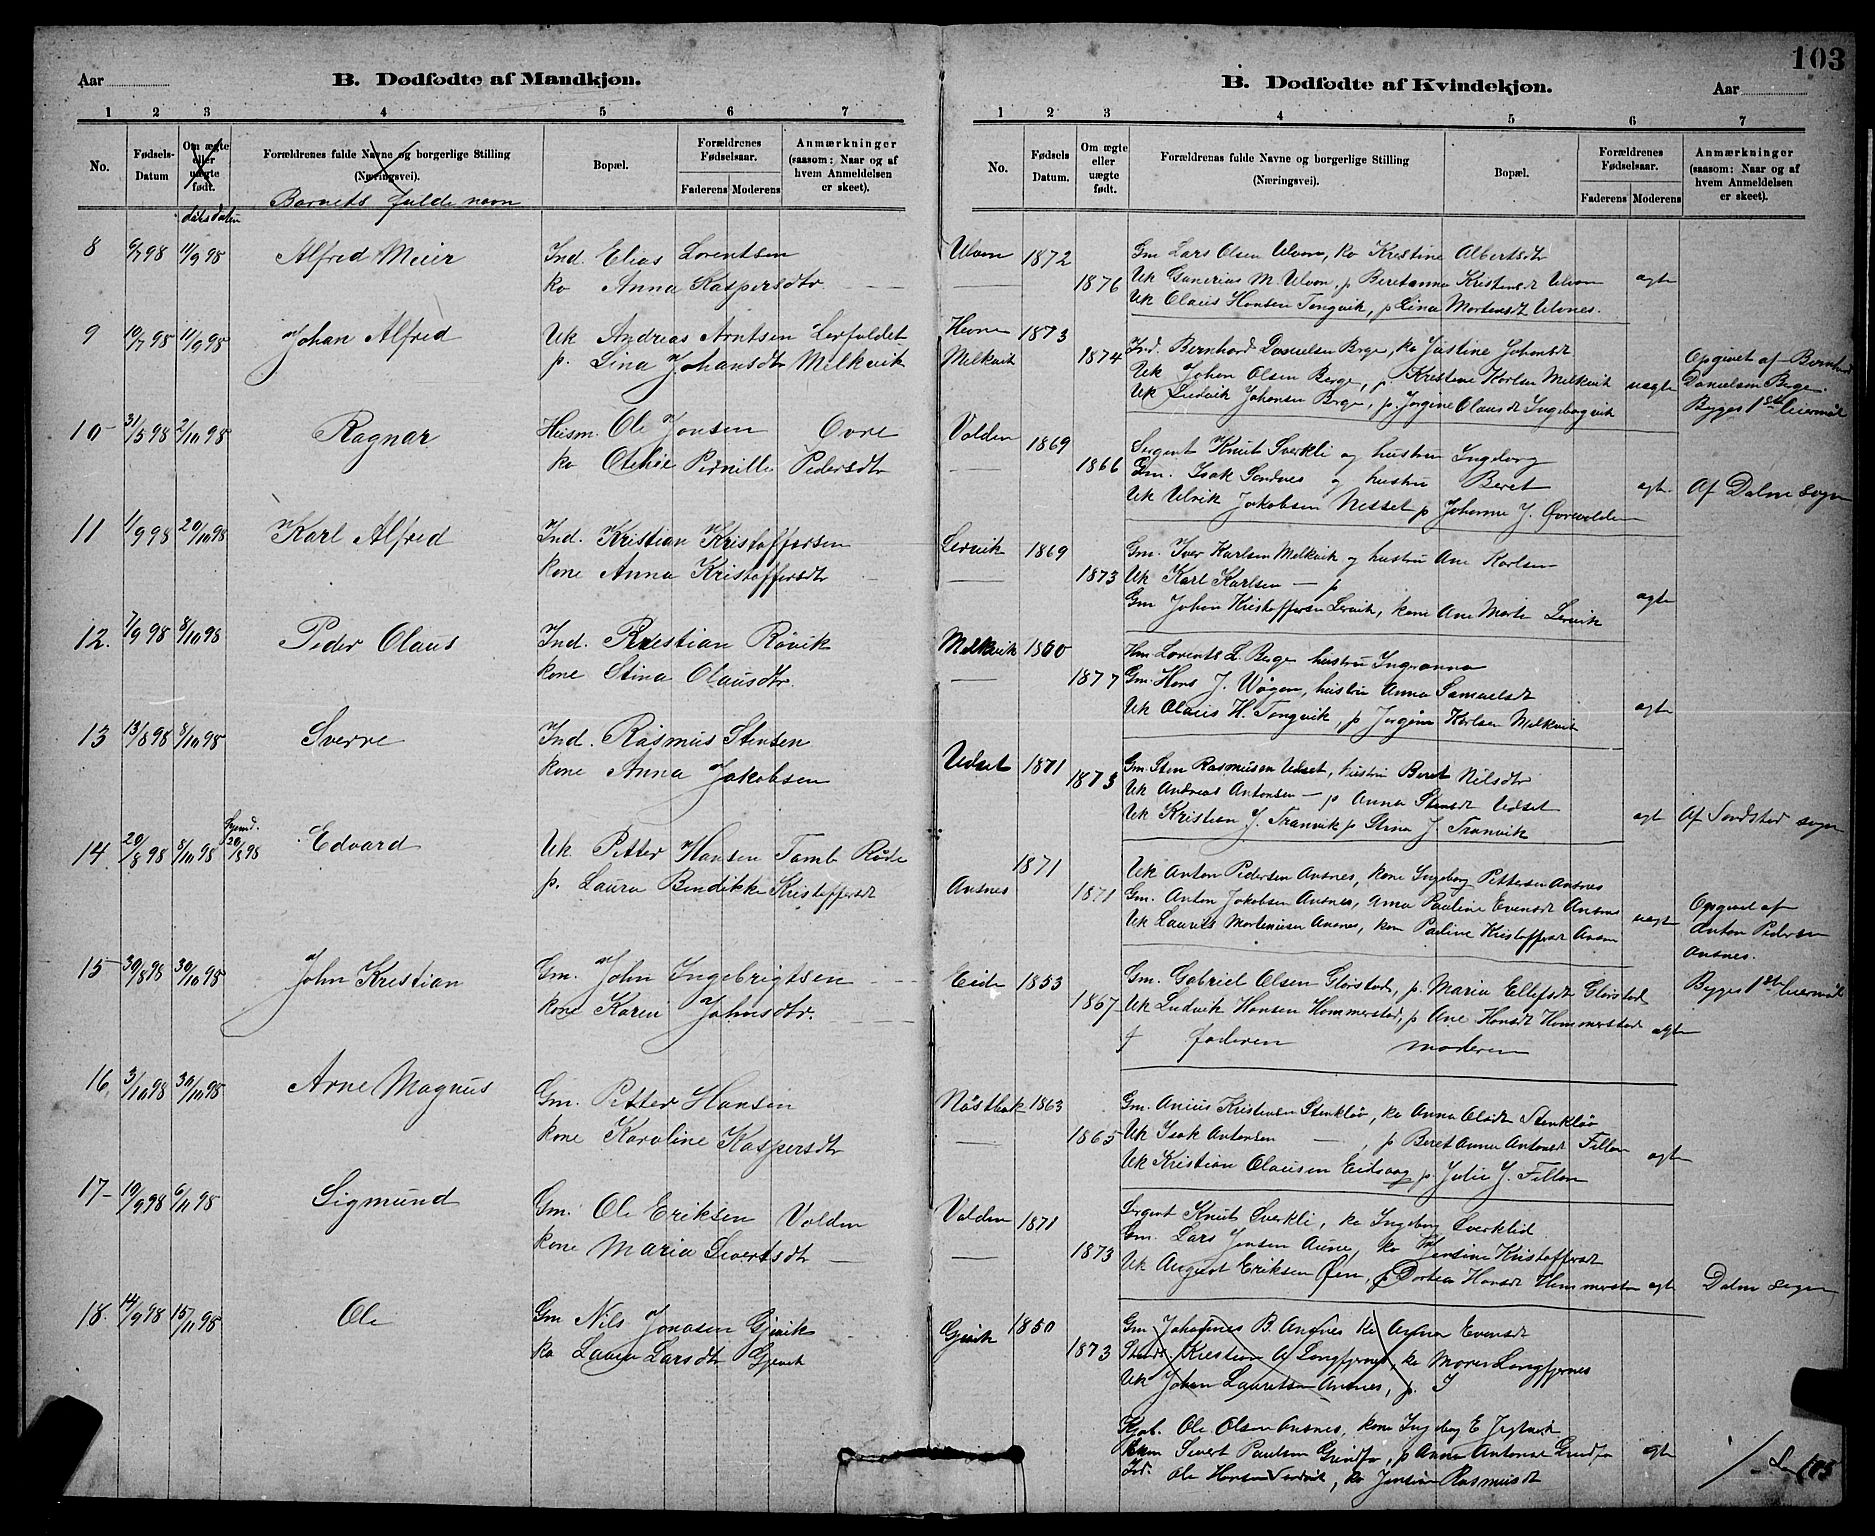 103
Aar
B. Dødfødte af Mandkjøn.
B. Dødfødte af Kvindekjøn.
Aar
1 2 3 4 5 6 7
1 2 3 4 5 6 7
No.
Fødsels-Datum
Om ægte eller uægte født.
Forældrenes fulde Navne og borgerlige Stilling (Næringsvei).
Bopæl.
Forældrenes Fødselsaar.
Faderens Moderens
Anmærkninger (saasom: Naar og af hvem Anmeldelsen er skeet).
Barnets fulde navn
dåbsdatum
No.
Fødsels Datum.
Om ægte eller uægte født.
Forældrenes fulde Navne og borgerlige Stilling (Næringsvei).
Bopæl.
Forældrenes Fødselsaar.
Faderens Moderens
Anmærkninger (saasom: Naar og af hvem Anmeldelsen er skeet).
8 6/7 98 11/9 98 Alfred Meier Ind. Elias Lorentsen Ulvøn 1872 Gm Lars Olsen Ulvøn, ko Kristine Albertsdtr
ko Anna Kaspersdtr 1876 Uk Gunerius M. Ulvøn, p Beretanna Kristensdt Ulvøn ægte
Uk Olaus Hansen Tongvik, p Lina Mortensdt Ulvnes.
9 10/7 98 11/9 98 Johan Alfred Uk Andreas Arntsen Lerfaldet Hevne 1873 Ind. Bernhard Danielsen Berge, ko Justine Johansdt
p. Lina Johansdtr Melkvik Melkvik 1874 Uk Johan Olsen Berge, p. Kristine Karlsen Melkvik uægte Opgivet af Bernhard Danielsen Berge.
Uk Ludvik Johansen Berge, p. Jørgine Olausdt Ingeborgvik Begges 1ste leiermål
10 31/5 98 2/10 98 Ragnar Husm. Ole Jonsen Øvre Volden 1869 Sergent Knut Sverkli og hustru Ingeborg
ko Otelie Pernille Pedersdtr 1866 Gm. Isak Sandnes og hustru Beret ægte Af Dalm sogn
Uk Ulrik Jakobsen Nesset p Johanna J. Øvrevolden
11 1/9 98 20/10 98 Karl Alfred Ind. Kristian Kristoffersen Lervik 1869 Gm. Iver Karlsen Melkvik og hustru Ane Karlsen
kone Anna Kristoffersdtr 1873 Uk Karl Karlsen — p
Gm Johan Kristoffersen Lervik, kone Ane Marte Lervik ægte
12. 7/9 98 8/10 98 Peder Olaus Ind. Kristian Røvik Melkvik 1860 Hm Lorents L. Berge hustru Ingeranna
kone Stina Olausdtr. 1877 Gm. Hans J. Vågan, hustru Anna Samuelsdt
Uk Olaus H. Tongvik, p Jørgine Karlsen Melkvik ægte
13 13/8 98 8/10 98 Sverre Ind. Rasmus Stensen Udset 1871 Gm. Sten Rasmussen Udset, hustru Beret Nilsdtr
kone Anna Jakobsen 1873 Uk Andreas Antonsen — p Anna Stensdt Udset
Uk Kristian J. Tranvik p Stina J Tranvik ægt Af Sandstad sogn
14. 20/8 98 8/10 98 20/8 98 Edvard Uk Petter Hansen Tamb Råde 1871 Uk Anton Pedersen Ansnes, kone Ingeborg Pettersen Ansnes
p. Laura Bendikke Kristoffersdt Ansnes 1871 Gm. Anton Jakobsen Ansnes, Anna Pauline Evensdt Ansnes uægte Opgivet af Anton Pedersen Ansnes.
Uk Laurits Morteniusen Ansnes, kone Pauline Kristoffersdt Ansnes Begges 1ste leiermål
15 30/8 98 30/10 98 John Kristian Gm. John Ingebrigtsen Eide 1853 Gm. Gabriel Olsen Glørstad, p. Maria Ellefsdt Glørstad
kone Karen Johnsdtr. 1867 Uk Ludvik Hansen Hammerstad, p Ane Hansdt Hammerstad ægte
f faderen moderen
16. 3/10 98 30/10 98 Arne Magnus Gm. Petter Hansen Nøstbak 1863 Gm. Anius Kristensen Stenkløv, ko Anna Olsdt Stenkløv
kone Karoline Kaspersdtr 1865 Uk Isak Antonsen — , p Beret Anna Antonsdt Fillan
Uk Kristian Olausen Eidsaag p. Julie J. Fillan ægte
17 19/9 98 6/11 98 Sigmund Gm. Ole Eriksen Volden Volden 1871 Sergent Knut Sverkli, ko Ingeborg Sverklid
kone Maria Sivertsdtr 1873 Gm. Lars Jensen Aune, ko Jensine Kristoffersdt
Uk August Eriksen Øien, p Dortea Hansdt Hammerstad ægte Dalm sogn
18. 14/9 98 15/11 98 Ole Gm Nils Jonasen Gjevik Gjevik 1850 Gm Johannes B. Ansnes ko Anna Evensdt
ko Laura Larsdtr Gjevik 1873 Kristian A Langfjernes, ko Maren Langfjernes
Uk Johan Lauritsen Ansnes, p. J
Gab. Ole Olsen Ansnes, kone Ingeborg E
Sivert Paulsen Grindfa, p Anna Antonsdt Grindfa ægte
Ind. Ole Hansen, ko Jensine Rasmusdt
105